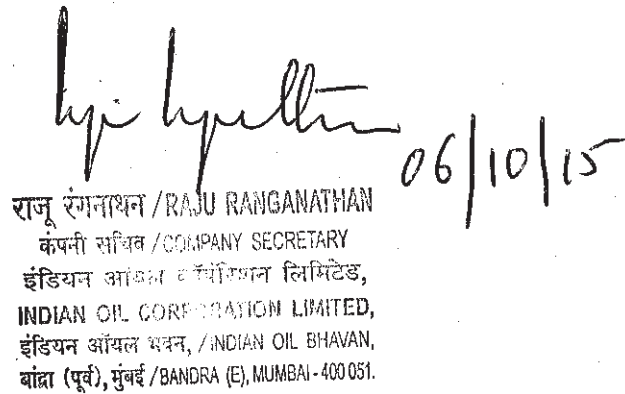 06/10/15
राजू रंगनाथन /RAJU RANGANATHAN
कंपनी सचिव /COMPANY SECRETARY
इंडियन ऑयल कॉर्पोरेशन लिमिटेड,
INDIAN OIL CORPORATION LIMITED,
इंडियन ऑयल भवन, /INDIAN OIL BHAVAN,
बांद्रा (पूर्व), मुंबई /BANDRA (E), MUMBAI - 400 051.